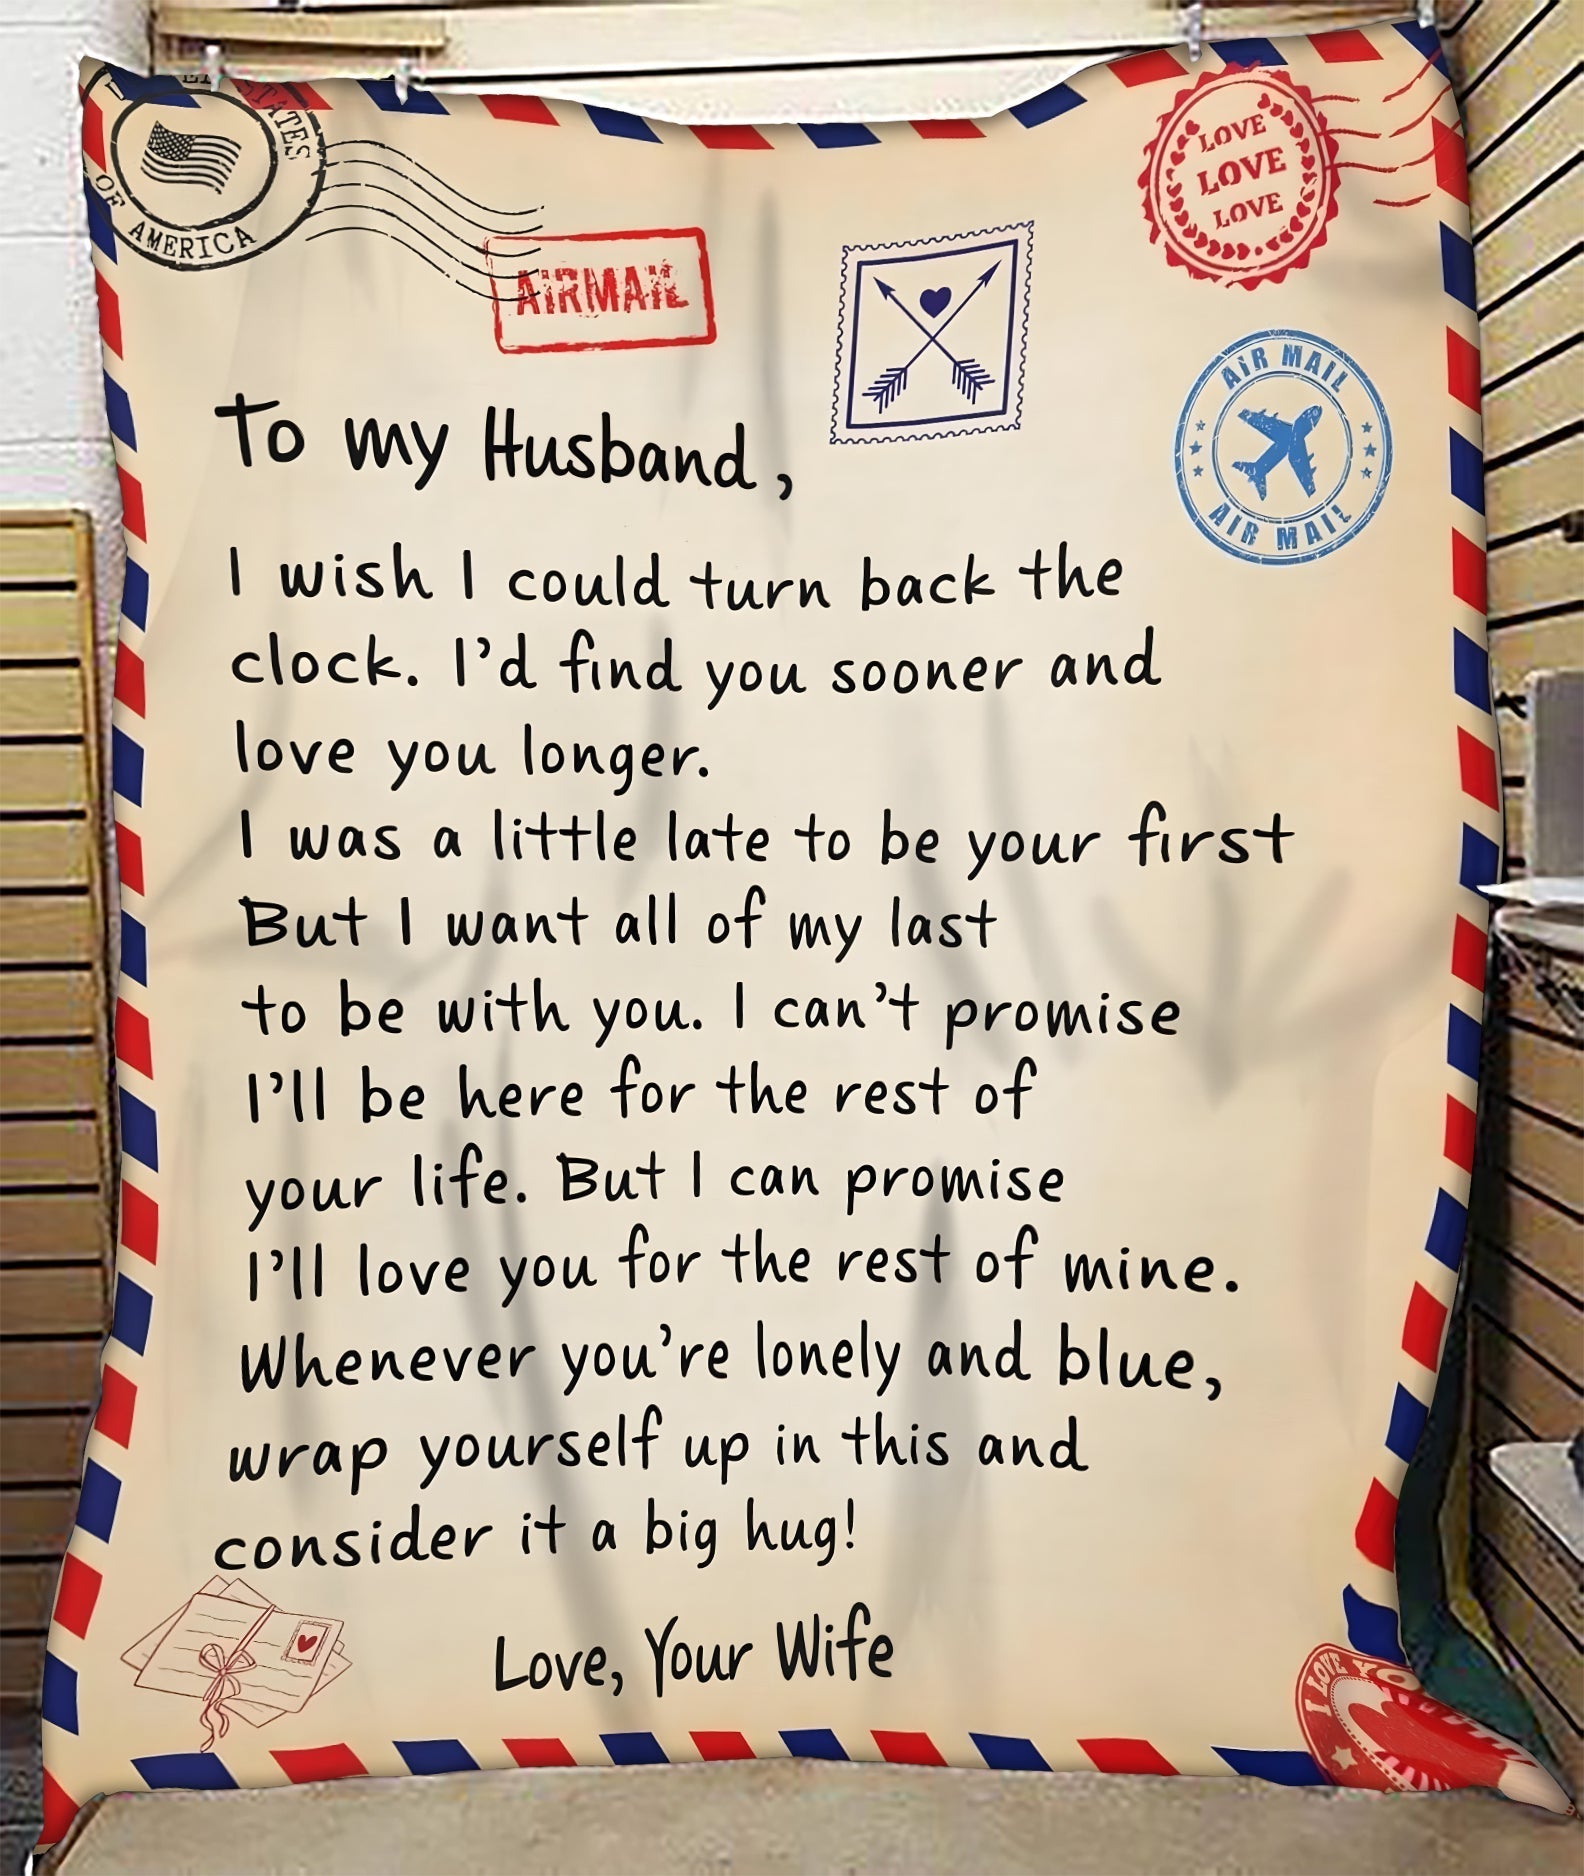 STATES
OF AMERICA
LOVE
LOVE
LOVE
AIRMAIL
AIR MAIL
AIR MAIL
To my Husband,
I wish I could turn back the
clock. I'd find you sooner and
love you longer.
I was a little late to be your first
But I want all of my last
to be with you. I can't promise
I'll be here for the rest of
your life. But I can promise
I'll love you for the rest of mine.
Whenever you're lonely and blue,
wrap yourself up in this and
consider it a big hug!
Love, Your Wife
I LOVE